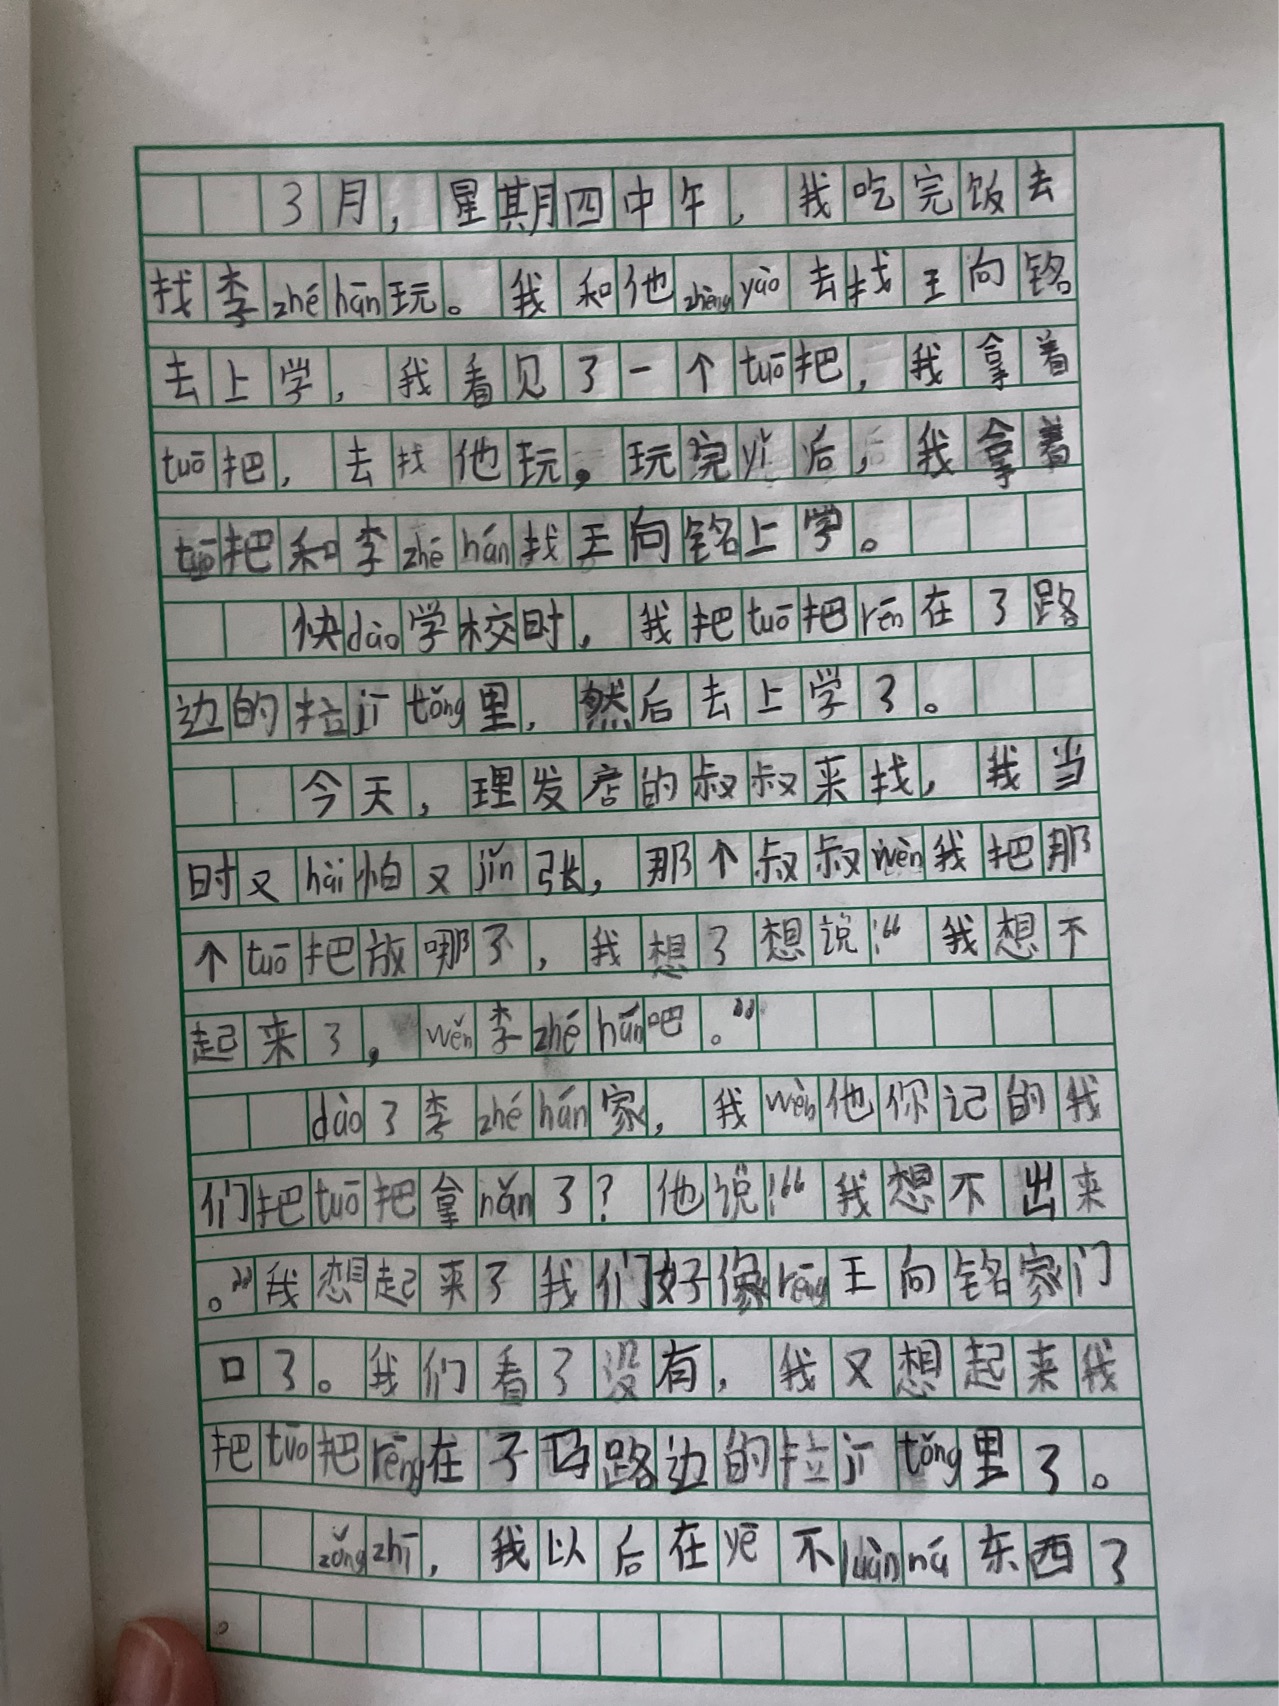 3月，星期四中午，我吃完饭去
找李zhé hān玩。我和他zhěng yào去找王向铭
去上学，我看见了一个tuō把，我拿着
tuō把，去找他玩。玩完yǐ后，我拿着
tuō把和李zhé hán找王向铭上学。
快dào学校时，我把tuō把rēn在了路
边的拉jī tǒng里，然后去上学了。
今天，理发店的叔叔来找，我当
时又hài怕又jǐn张，那个叔叔wèn我把那
个tuō把放哪了，我想了想说：“我想不
起来了，wěn李zhé hán吧。”
dào了李zhé hán家，我wèn他你记的我
们把tuō把拿nǎn了？他说：“我想不出来
。”我想起来了我们好像rēng王向铭家门
口了。我们看了没有，我又想起来我
把tuō把rēng在了路边的拉jī tǒng里了。
zǒng zhī，我以后在yě不luàn ná东西了
。